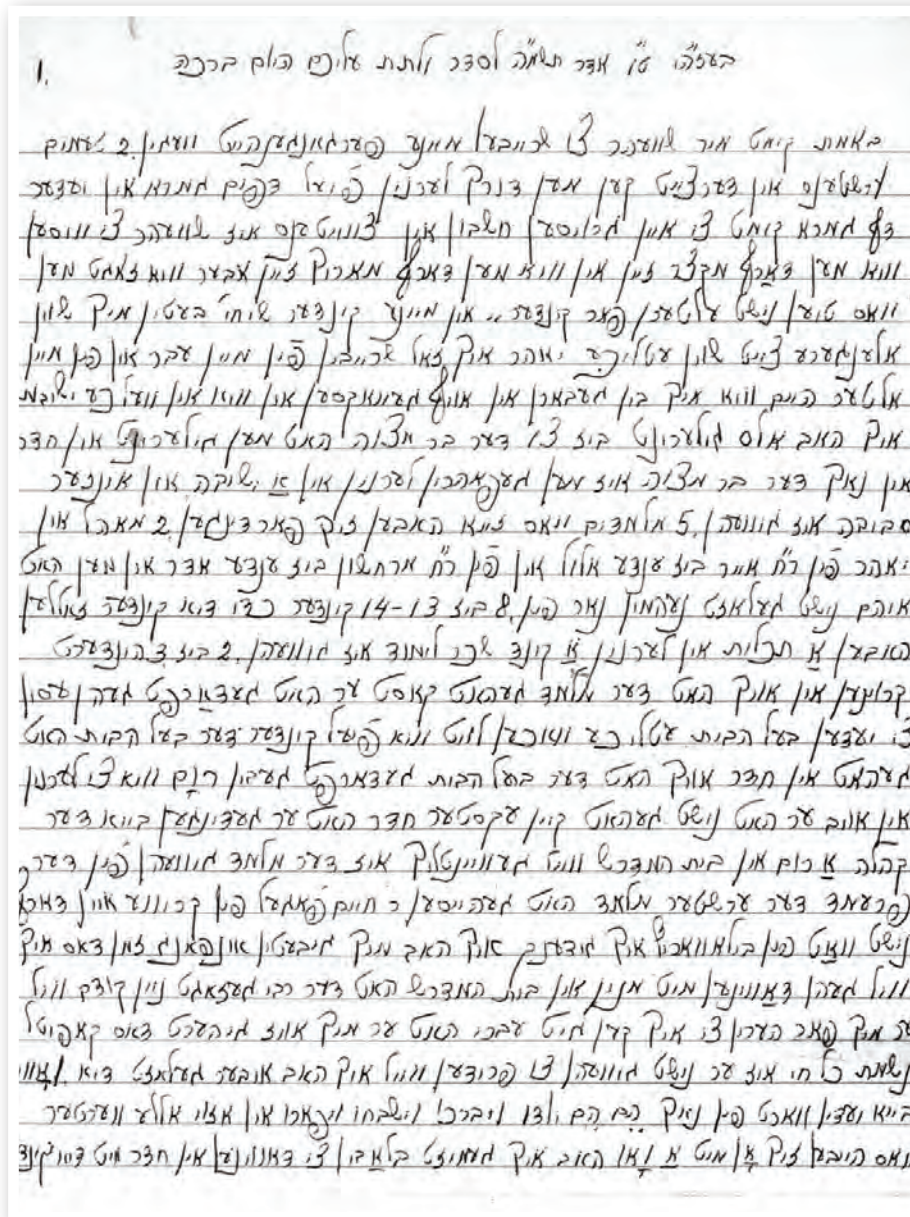 1.
בעזה"י ט"ו אדר תשמ"ה לסדר ולתת עליכם היום ברכה
באמת קומט מיר שווער צו שרייבען מיינע פערגאנגענהייט וועגין 2 טעמים
ערשטענס אין דערצייט קען מען דורך לערנין פיעל דפים גמרא און יעדער
דף גמרא קומט צו איין גרויסען חשבון און צווייטענס איז שווער צו וויסען
וויא מען דארף מקצר זיין און וויא מען דארף מאריך זיין אבער וויא זאגט מען
וואס טוען נישט עלטערן פאר קינדער,, און מיינע קינדער שיחי' בעטין מיך שוין
אלענגערע צייט שוין עטליכע יאהר איך זאל שרייבין פין מיין עבר און פין מיין
אלטער היים וויא איך בין געבארן אין אויף געוואקסען און וויא אין וועלכע ישיבות
איך האב אלס גילערינט ביז צו דער בר מצוה האט מען גילערינט אין חדר
אין נאך דער בר מצוה איז מען געפאהרין לערנין אין א ישיבה, אין אונזער
סביבה איז גוועהן 5 מלמדים וואס זייא האבען זיך פארדינגען 2 מאהל אין
יאהר פין ר"ח אייר ביז ענדע אלול און פין ר"ח מרחשון ביז ענדע אדר און מען האט
איהם נישט געלאזט נעהמין נאר פין 8 ביז 13-14 קינדער כדי דיא קינדער זאללען
האבען א תכלית אין לערנין א קינד שכר לימוד איז גוועהן 2 ביז 3 הונדערט
קרוינען אין אויך האט דער מלמד געהאט קאסט ער האט געדארפט געהן עסין
צו יעדען בעל הבית עטליכע וואכען לויט וויא פיעל קינדער דער בעל הבית האט
געהאט אין חדר אויך האט דער בעל הבית געדארפט געבין רום וויא צו לערנין
אין אויב ער האט נישט געהאט קיין עקסטער חדר האט ער געדינגען בייא דער
קהלה א רום אין בית המדרש ווייל געוויינטליך איז דער מלמד גוועהן פין דער
פרעמד דער ערשטער מלמד האט געהייסען ר חיים פאגעל פין קריווע איין דארף
נישט ווייט פין געדענק איך האב מיך גיבעטין אנפאנג זמן דאס איך
וויל געהן דאווינען מיט מנין אין בית המדרש האט דער רבי געזאגט ניין קודם וויל
ער מיך פאר הערין צו איך קען גיט עברי האט ער מיך אויס גיהערט דאס קאפיטל
נשמת כל חי איז ער נישט גוועהן צו פרידען ווייל איך האב איבער געלאזט דיא
בייא יעדין ווארט פין נאך הם הם יודו ויברכו וישבחו ויפארו אין אזוי אללע ווערטער
וואס הייבען זיך אן מיט א ואו האב איך געמוזט בלאבין צו דאווינען אין חדר מיט דיא קינד